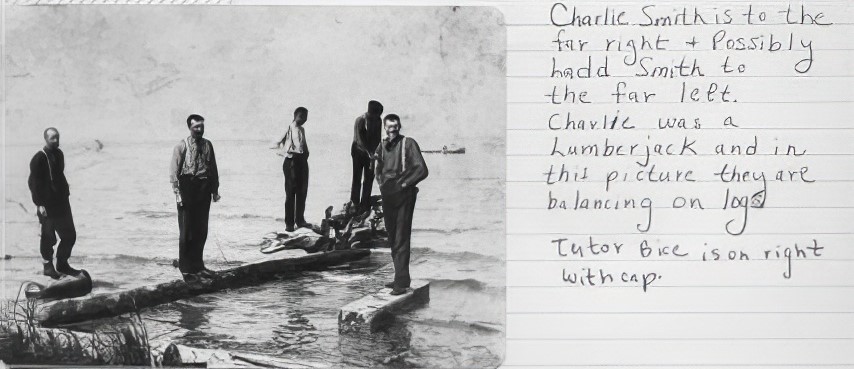 Charlie Smith is to the
far right + Possibly
hadd Smith to
the far left.
Charlie was a
Lumberjack and in
this picture they are
balancing on logs
Tutor Bice is on right
with cap.